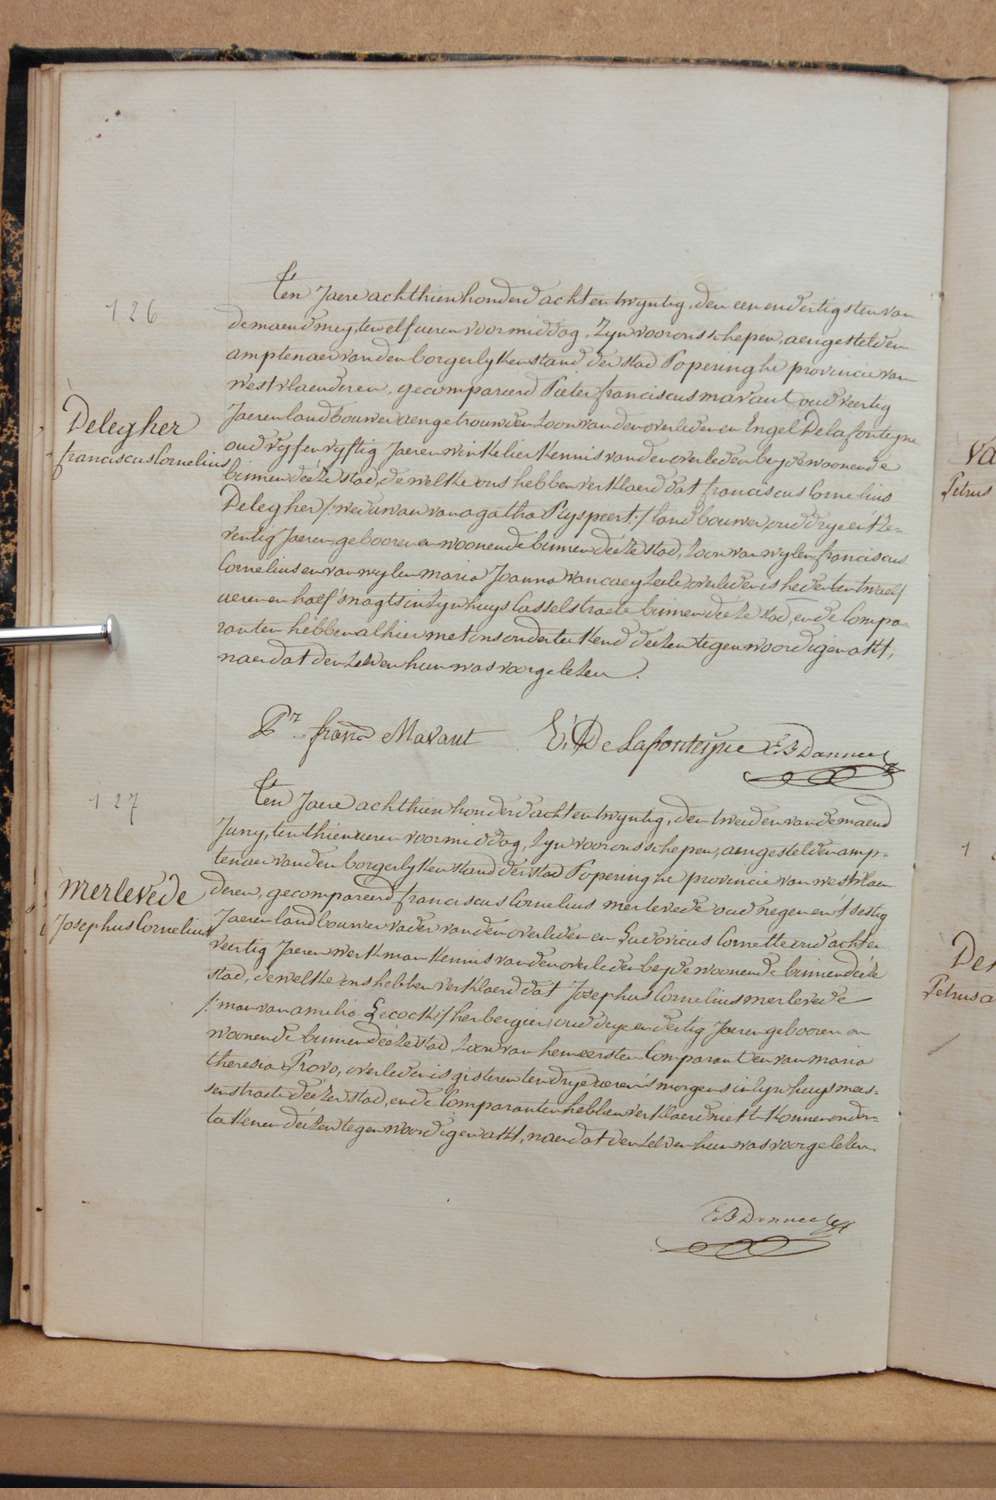 126
Delegher
franciscus Cornelius
Ten Jaere achthien honderd acht en twyntig, den een en dertigsten van
de maend mey, ten elf ueren voormiddag, Zyn voor ons schepen, aengestelden
amptenaer van den borgerlyken stand der stad Poperinghe provincie van
westvlaenderen, gecompareerd Pieter franciscus mavaut oud veertig
Jaeren landbouwer aengetrouwden Zoon van den overleden en Engel Delafonteyne
oud vyf en vyftig Jaeren winkelier Kennis van den overleden beyde woonende
binnen deéze stad, de welke ons hebben verklaerd dat franciscus Cornelius
Delegher /: weduwaer van agatha Ryspeert :/ landbouwer, oud drye en 't Ze-
ventig Jaeren, gebooren en woonende binnen deéze stad, Zoon van wylen franciscus
Cornelius en van wylen maria Joanna van caeyzeele, overleden is heden ten twaelf
ueren en half s'nagts in Zyn huys Casselstraete binnen deéze stad, en de Compa-
ranten hebben alhier met ons onderteekend deézen tegenwoordigen akt,
naer dat den Zelven hun was voorgelezen.
Pr. franc. Mavaut E: De Lafonteyne E B Dannee
127
Merlevede
Josephus Cornelius
Ten Jaere achthien honderd acht en twyntig, den tweeden van de maend
Juny, ten thien ueren voormiddag, Zyn voor ons schepen, aengestelden amp-
tenaer van den borgerlyken stand der stad Poperinghe provincie van westvlaen-
deren, gecompareerd franciscus Cornelius merlevede oud negen en 't sestig
Jaeren landbouwer vader van den overleden en Ludovicus Cornette oud acht en
veertig Jaeren werkman Kennis van den overleden beyde woonende binnen deéze
stad, de welke ons hebben verklaerd dat Josephus Cornelius merlevede
/: man van amelia Lecock :/ herbergier, oud drye en dertig Jaeren gebooren en
woonende binnen deéze stad, Zoon van den eersten Comparant en van maria
theresia Provo, overleden is gisteren ten drye ueren 's morgens in Zyn huys mees-
senstraete deézer stad, en de Comparanten hebben verklaerd niet te Konnen onder-
teekenen deézen tegenwoordigen akt, naer dat den Zelven hun was voorgelezen.
E B Dannee
Va
Petrus
Petrus a